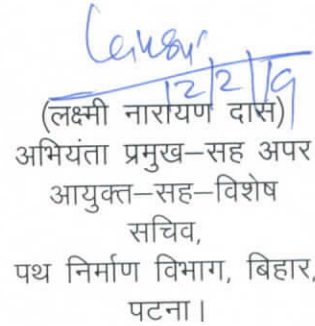 12/2/19
(लक्ष्मी नारायण दास)
अभियंता प्रमुख–सह अपर
आयुक्त–सह–विशेष
सचिव,
पथ निर्माण विभाग, बिहार,
पटना।